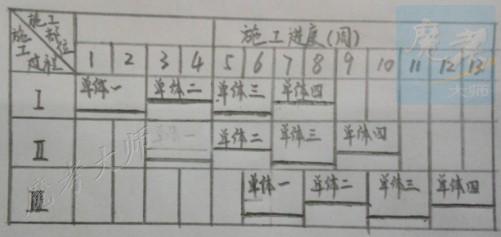 施工部位
施工过程
施工进度(周)
1 2 3 4 5 6 7 8 9 10 11 12 13
I 单体一 单体二 单体三 单体四
II 单体二 单体三 单体四
III 单体一 单体二 单体三 单体四
魔考大师